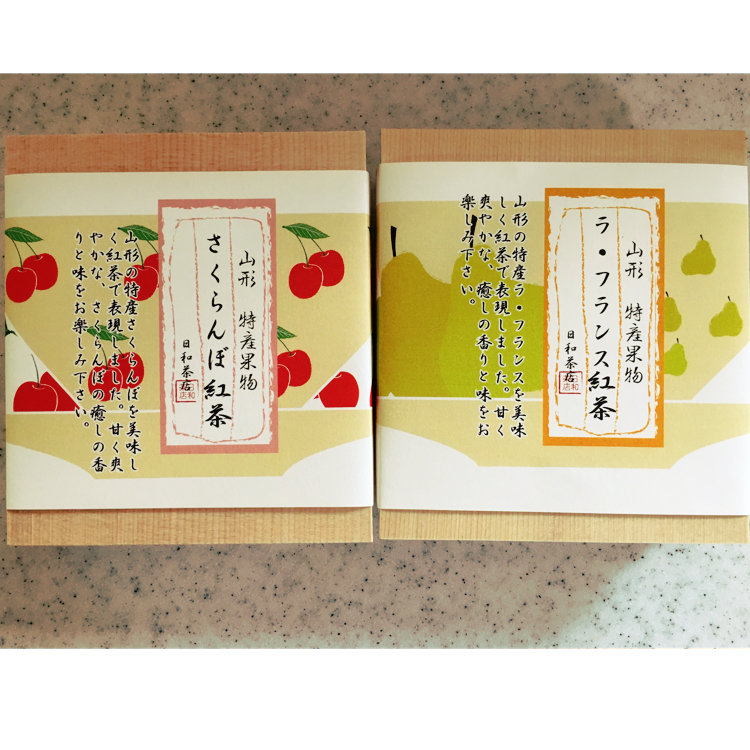 山形 特産果物
さくらんぼ紅茶
日和茶店
山形の特産さくらんぼを美味し
く紅茶で表現しました。甘く爽
やかな、さくらんぼの癒しの香
りと味をお楽しみ下さい。
山形 特産果物
ラ・フランス紅茶
日和茶店
山形の特産ラ・フランスを美味
しく紅茶で表現しました。甘く
爽やかな、癒しの香りと味をお
楽しみ下さい。